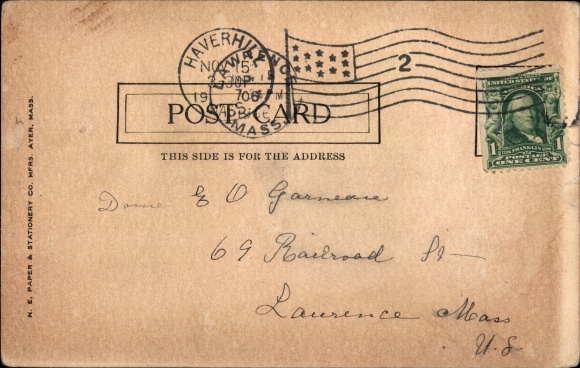 HAVERHILL
NOV 15
3-30P
1906
MASS.
2
UNITED STATES
1 FRANKLIN 1
POSTAGE
ONE CENT
POST CARD
THIS SIDE IS FOR THE ADDRESS
E O Garneau
69 Railroad St
Laurence Mass
U.S
N. E. PAPER & STATIONERY CO. MFRS. AYER, MASS.